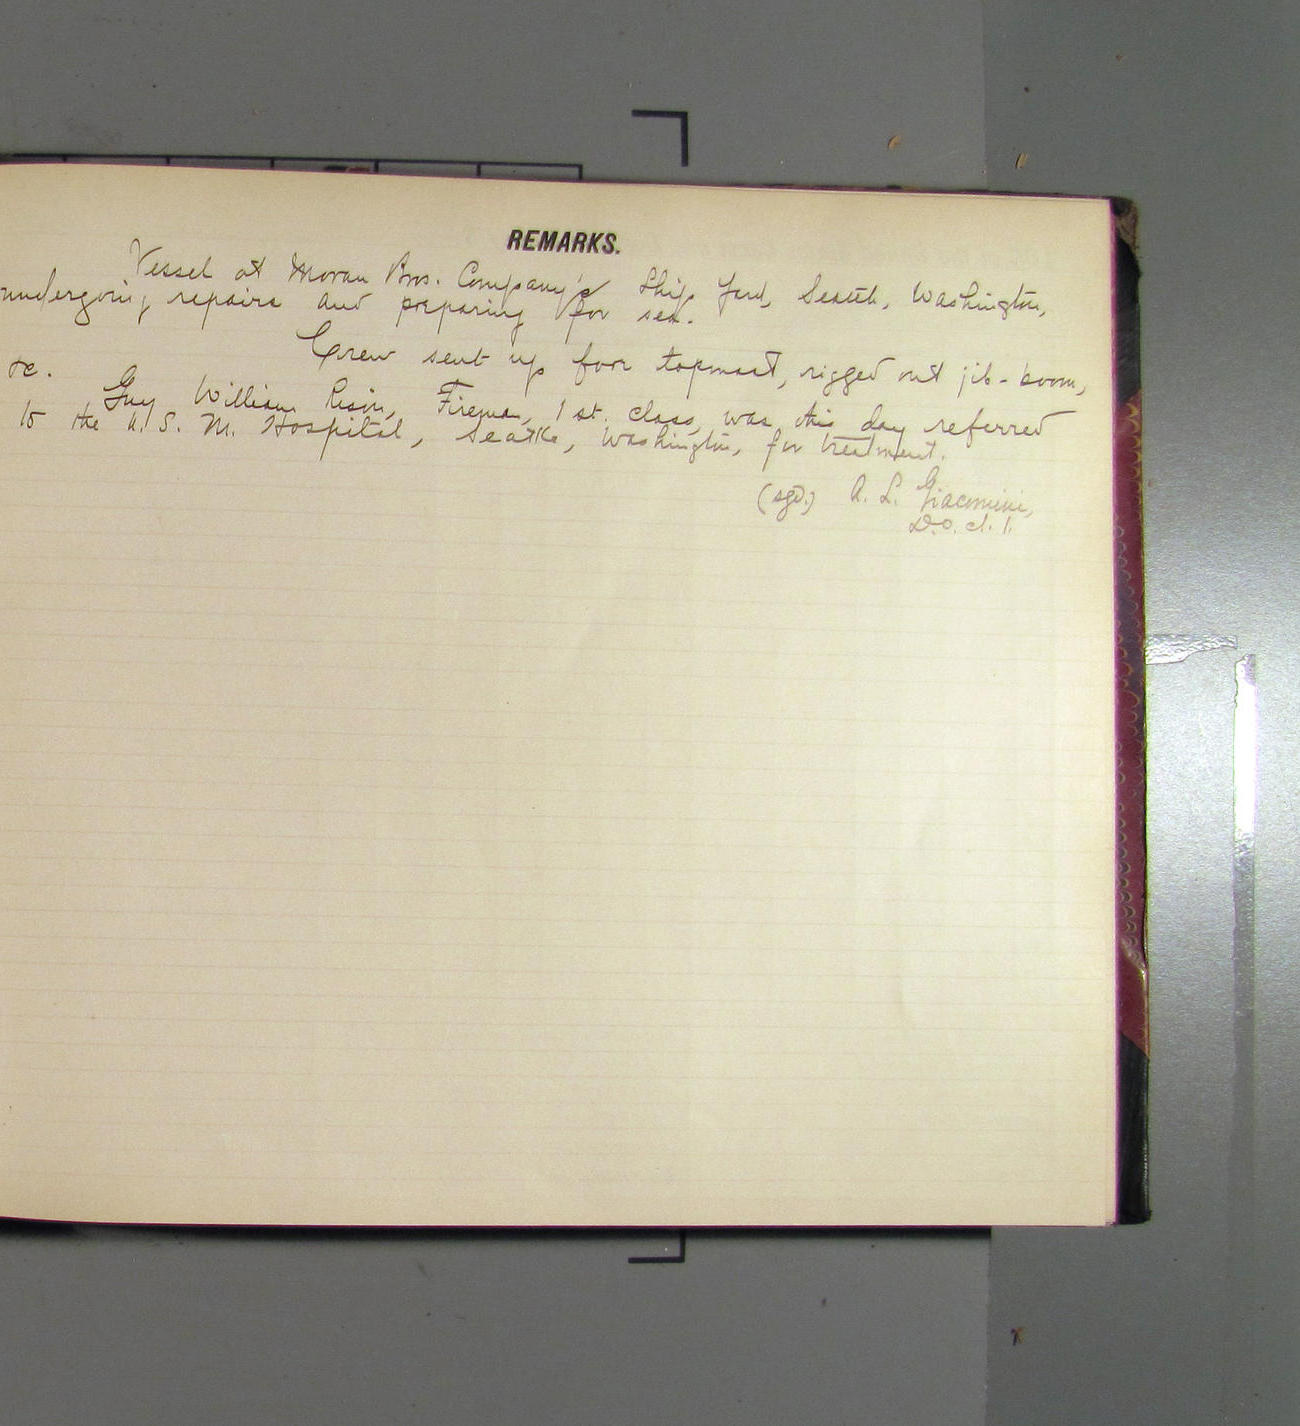 REMARKS.
Vessel at Moran Bros. Company's Ship Yard, Seattle, Washington,
undergoing repairs and preparing for sea.
Crew sent up fore topmast, rigged out jib-boom,
&c.
Guy William Fireman, 1st. class, was this day referred
to the U. S. M. Hospital, Seattle, Washington, for treatment.
(sgd.) A. L. Giacomini,